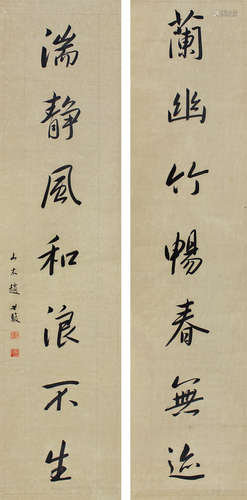 蘭幽竹暢春無迹
湍靜風和浪不生
山木趙世駿